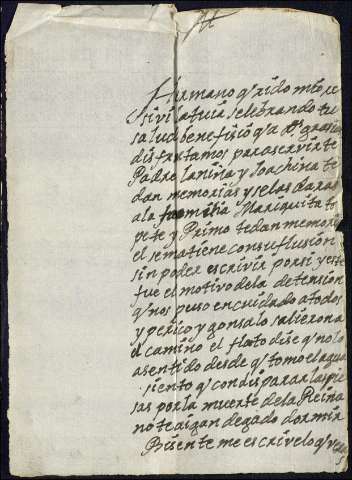 Hermano qrido mio re
sivi la tuia selebrando tu
salud benefisio q a Ds grasias
disfrutamos para servirte
Padre la niña y Joachina te
dan memorias y se las daras
a la familia Mariquita to
pete y Primo te dan memori
el se mantiene con su flusion
sin poder escrivir por si y este
fue el motivo de la detension
q nos puso en cuidado a todos
y perico y gonsalo salieron a
el camino el flato dise q no lo
a sentido desde q tomo el agua
siento q con disparar las pie
sas por la muerte de la Reina
no te aigan degado dormir
Bisente me escrive lo q